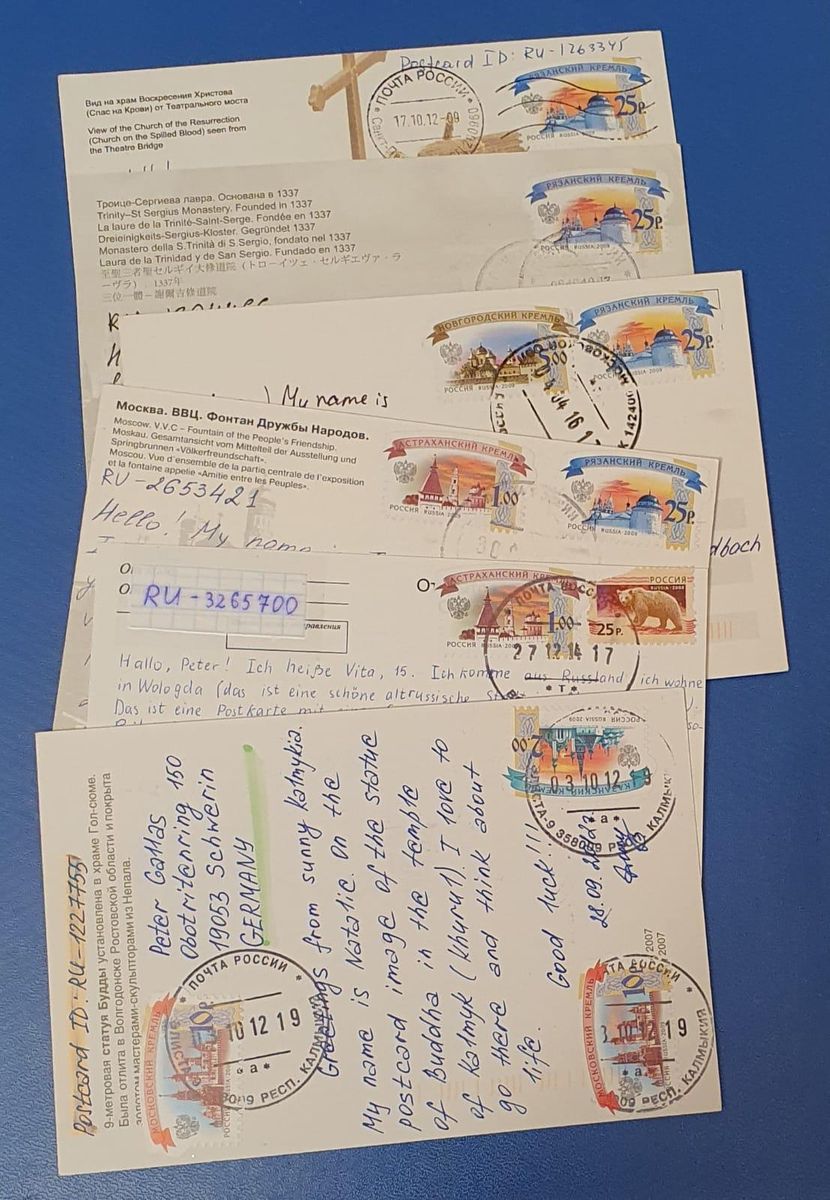 Postcard ID: RU-1263345
Вид на храм Воскресения Христова
(Спас на Крови) от Театрального моста
View of the Church of the Resurrection
(Church on the Spilled Blood) seen from
the Theatre Bridge
ПОЧТА РОССИИ
17.10.12-09
РЯЗАНСКИЙ КРЕМЛЬ
25р.
РОССИЯ RUSSIA·2009
Троице-Сергиева лавра. Основана в 1337
Trinity–St Sergius Monastery. Founded in 1337
La laure de la Trinité-Saint-Serge. Fondée en 1337
Dreieinigkeits-Sergius-Kloster. Gegründet 1337
Monastero della S.Trinità di S.Sergio, fondato nel 1337
Laura de la Trinidad y de San Sergio. Fundado en 1337
至聖三者聖セルギイ大修道院(トローイツェ・セルギエヴァ・ラ
ーヴラ). 1337年
РЯЗАНСКИЙ КРЕМЛЬ
25р.
РОССИЯ RUSSIA·2009
НОВГОРОДСКИЙ КРЕМЛЬ
5.00
РОССИЯ RUSSIA·2009
РЯЗАНСКИЙ КРЕМЛЬ
25р.
142400
) My name is
Москва. ВВЦ. Фонтан Дружбы Народов.
Moscow. V.V.C – Fountain of the People's Friendship.
Moskau. Gesamtansicht vom Mittelteil der Ausstellung und
Springbrunnen «Völkerfreundschaft».
Moscou. Vue d'ensemble de la partie centrale de l'exposition
et la fontaine appelie «Amitie entre les Peuples».
RU-2653421
Hello! My name
АСТРАХАНСКИЙ КРЕМЛЬ
1.00
РОССИЯ RUSSIA·2009
РЯЗАНСКИЙ КРЕМЛЬ
25р.
РОССИЯ RUSSIA·2009
dbach
RU-3265700
АСТРАХАНСКИЙ КРЕМЛЬ
1.00
РОССИЯ RUSSIA·2009
ПОЧТА РОССИИ
27 12 14 17
РОССИЯ
RUSSIA·2008
25р.
Hallo, Peter! Ich heiße Vita, 15. Ich komme aus Russland, ich wohne
in Wologda (das ist eine schöne altrussische
Das ist eine Postkarte mit
Postcard ID: RU-1227755
9-метровая статуя Будды установлена в храме Гол-сюме.
Была отлита в Волгодонске Ростовской области и покрыта
золотом мастерами-скульпторами из Непала.
Peter Gallas
Obotritenring 150
19053 Schwerin
GERMANY
Greetings from sunny Kalmykia.
My name is Natalie. On the
postcard image of the statue
of Buddha in the temple
of Kalmyk (khurul) I love to
go there and think about
life.
Good luck!!!
28.09.2012.
КАЗАНСКИЙ КРЕМЛЬ
2.00
РОССИЯ RUSSIA·2009
03.10.12 19
358009 РЕСП. КАЛМЫКИЯ
МОСКОВСКИЙ КРЕМЛЬ
10р.
ПОЧТА РОССИИ
10 12 19
РЕСП. КАЛМЫКИЯ
МОСКОВСКИЙ КРЕМЛЬ
10
3.10.12 19
РЕСП. КАЛМЫКИЯ
2007
2007